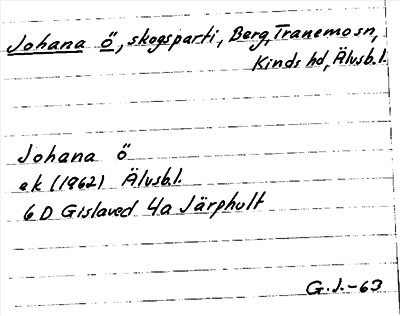 Johana ö, skogsparti, Berg, Tranemo sn,
Kinds hd, Älvsb.l.
Johana ö
ek (1962) Älvsb.l.
6D Gislaved 4a Järphult
G.J.-63